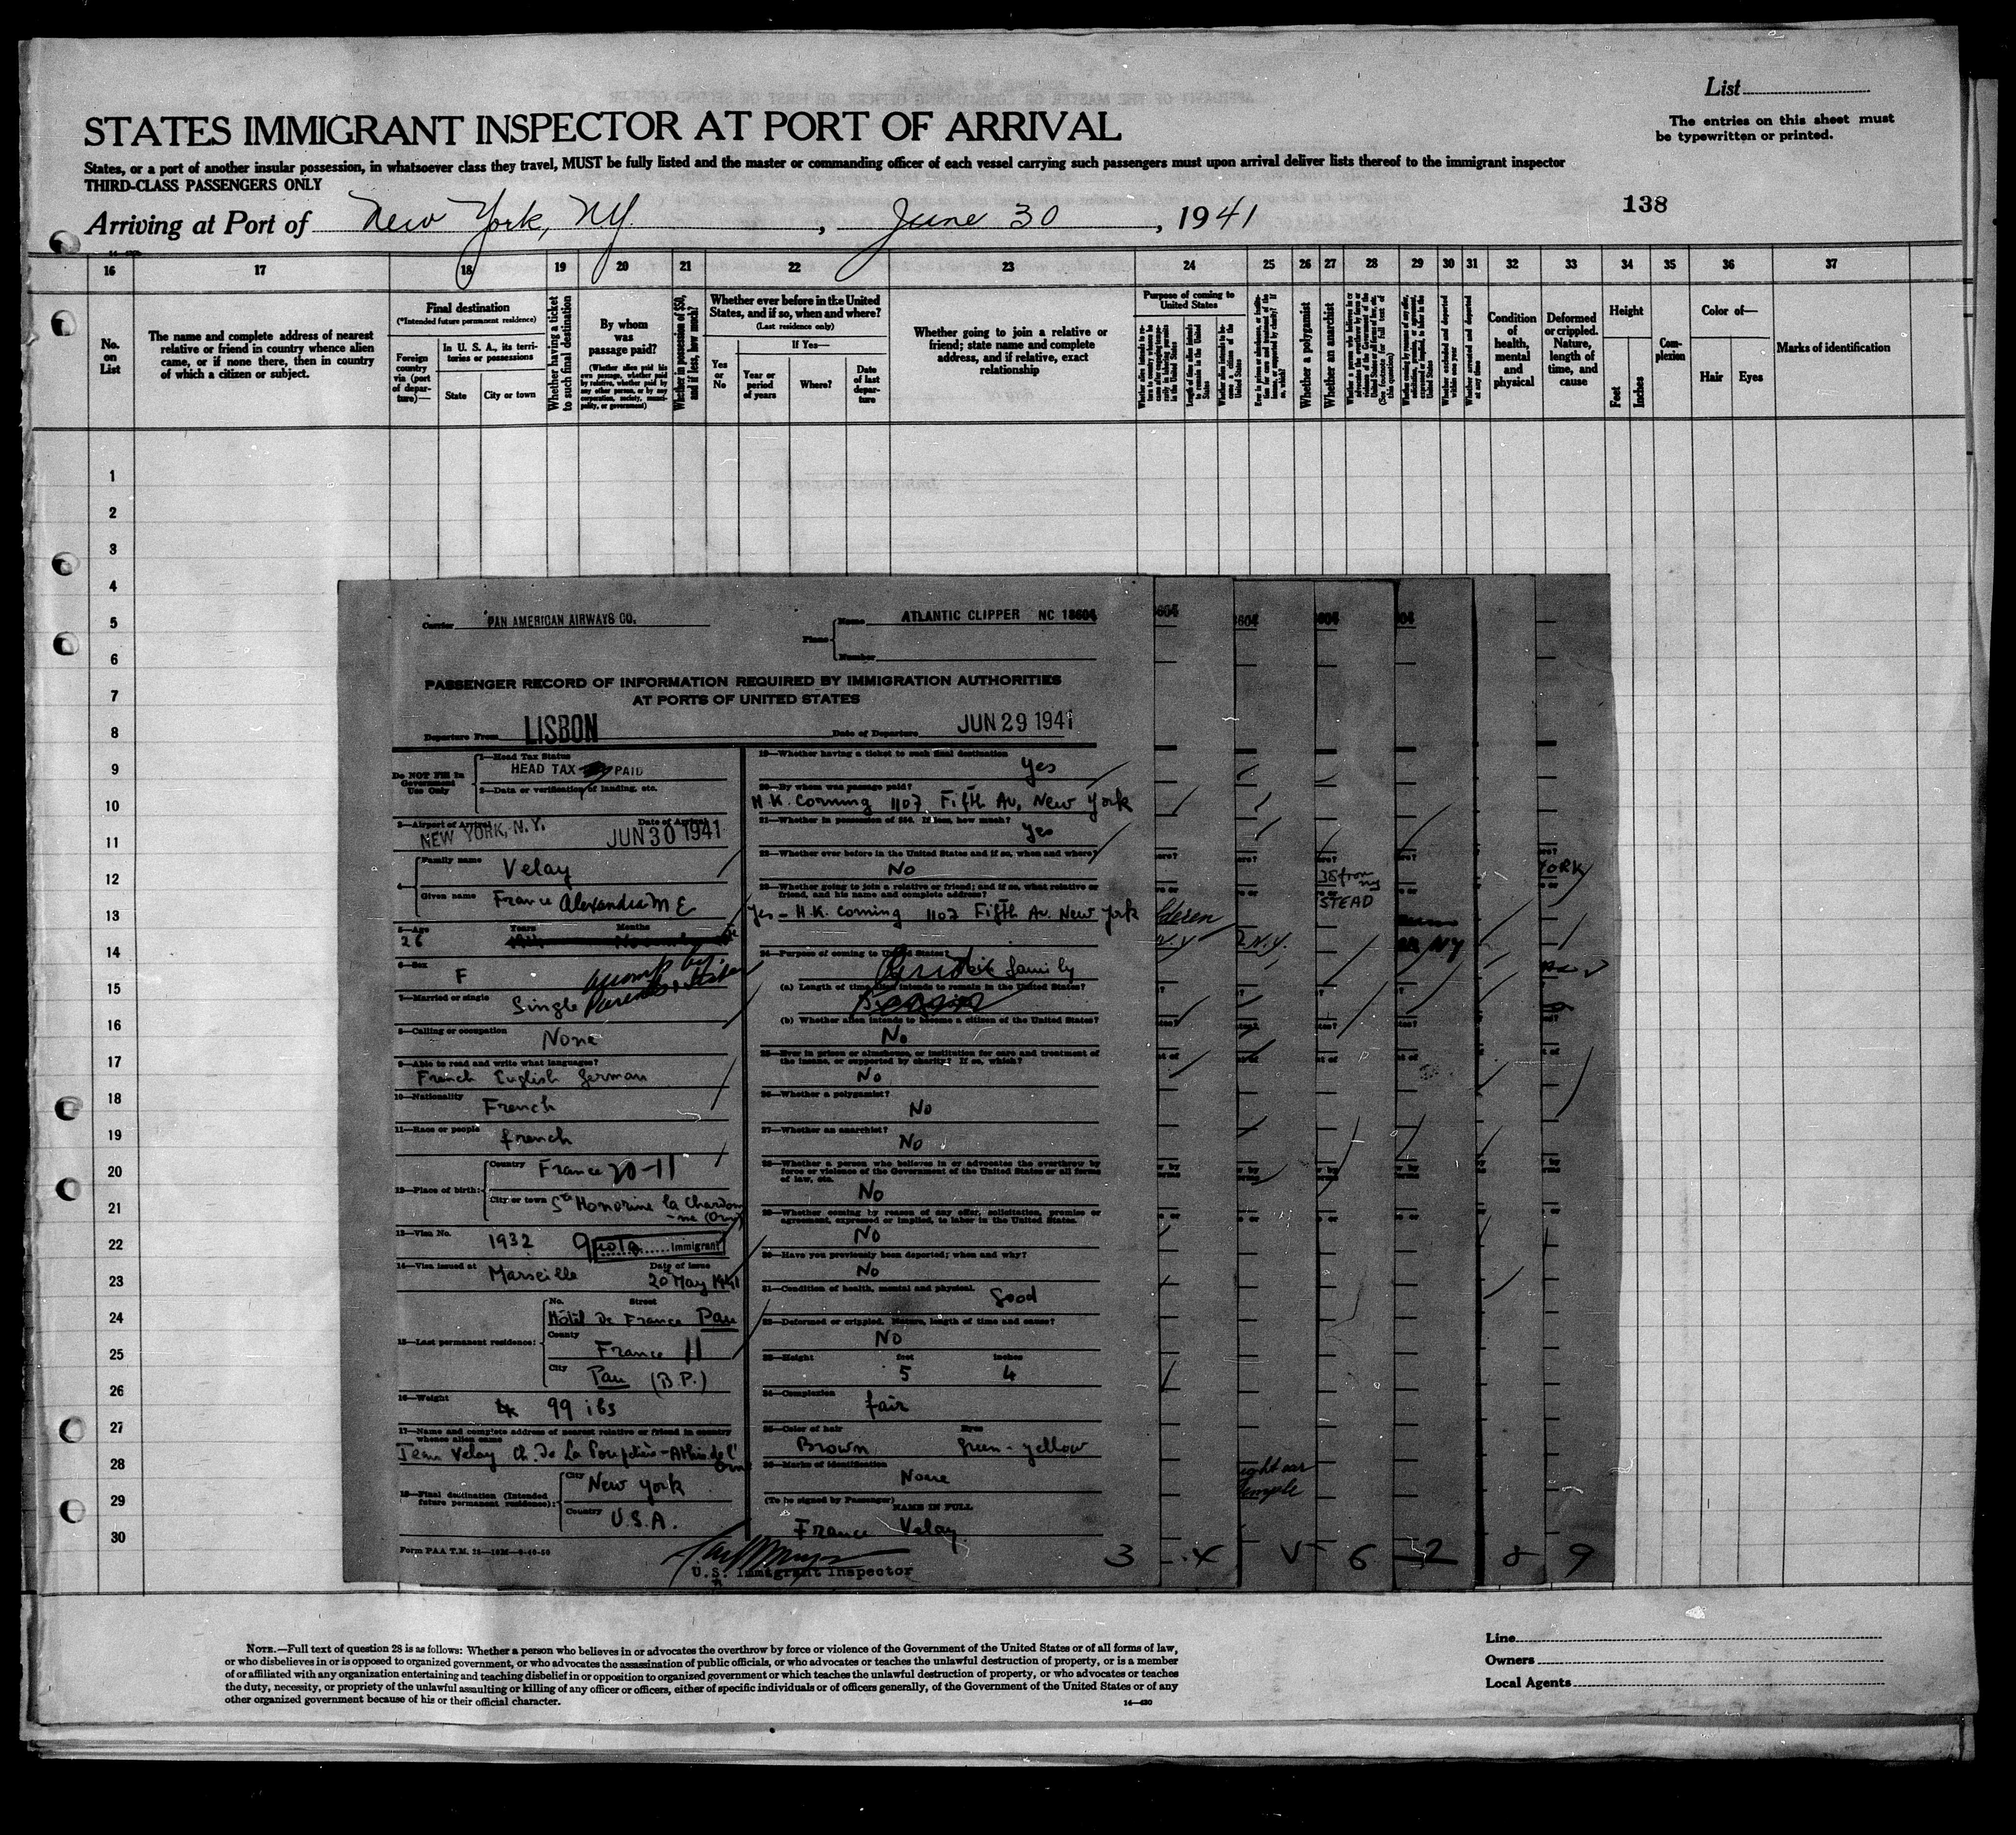 List
STATES IMMIGRANT INSPECTOR AT PORT OF ARRIVAL
The entries on this sheet must
be typewritten or printed.
States, or a port of another insular possession, in whatsoever class they travel, MUST be fully listed and the master or commanding officer of each vessel carrying such passengers must upon arrival deliver lists thereof to the immigrant inspector
THIRD-CLASS PASSENGERS ONLY
138
Arriving at Port of New York, NY. , June 30 , 1941
16 17 18 19 20 21 22 23 24 25 26 27 28 29 30 31 32 33 34 35 36 37
No. on List
The name and complete address of nearest relative or friend in country whence alien came, or if none there, then in country of which a citizen or subject.
Final destination
(*Intended future permanent residence)
Foreign country via (port of departure)—
In U. S. A., its territories or possessions
State
City or town
Whether having a ticket to such final destination
By whom was passage paid?
(Whether alien paid his own passage, whether paid by relative, whether paid by any other person, or by any corporation, society, municipality, or government)
Whether in possession of $50, and if less, how much?
Whether ever before in the United States, and if so, when and where?
(Last residence only)
Yes or No
If Yes—
Year or period of years
Where?
Date of last departure
Whether going to join a relative or friend; state name and complete address, and if relative, exact relationship
Purpose of coming to United States
Length of time alien intends to remain in the United States
Whether alien intends to become a citizen of the United States
Whether a polygamist
Whether an anarchist
Whether arrested and deported at any time
Condition of health, mental and physical
Deformed or crippled. Nature, length of time, and cause
Height
Feet
Inches
Complexion
Color of—
Hair
Eyes
Marks of identification
1
2
3
4
5
6
7
8
9
10
11
12
13
14
15
16
17
18
19
20
21
22
23
24
25
26
27
28
29
30
Carrier PAN AMERICAN AIRWAYS CO.
Plane
Name ATLANTIC CLIPPER NC 18604
Number
PASSENGER RECORD OF INFORMATION REQUIRED BY IMMIGRATION AUTHORITIES
AT PORTS OF UNITED STATES
Departure From LISBON
Date of Departure JUN 29 1941
Do NOT Fill In
Government
Use Only
1—Head Tax Status
HEAD TAX PAID
2—Data or verification of landing, etc.
3—Airport of Arrival NEW YORK, N. Y.
Date of Arrival JUN 30 1941
4—
Family name Velay
Given name France Alexandra M E
5—Age 26 Years Months
6—Sex F
7—Married or single Single
8—Calling or occupation None
9—Able to read and write what languages?
French English German
10—Nationality French
11—Race or people french
12—Place of birth:
Country France 20-11
City or town Ste Honorine la Chardon
-ne (Orne)
13—Visa No. 1932 Quota Immigrant
14—Visa issued at Marseille
Date of issue 20 May 1941
15—Last permanent residence:
No. Street
Hôtel De France Pau
County
France 11
City Pau (B.P.)
16—Weight 99 lbs
17—Name and complete address of nearest relative or friend in country
whence alien came
Jean Velay Ch. De La
18—Final destination (Intended
future permanent residence):
City New York
Country U.S.A.
Form PAA T.M.
U.S. Immigrant Inspector
19—Whether having a ticket to such final destination
Yes
20—By whom was passage paid?
H.K. Corning 1107 Fifth Av. New York
21—Whether in possession of $50. If less, how much?
Yes
22—Whether ever before in the United States and if so, when and where?
No
23—Whether going to join a relative or friend; and if so, what relative or
friend, and his name and complete address?
Yes - H.K. Corning 1107 Fifth Av. New York
24—Purpose of coming to United States?
family
(a) Length of time alien intends to remain in the United States?
(b) Whether alien intends to become a citizen of the United States?
No
25—Ever in prison or almshouse, or institution for care and treatment of
the insane, or supported by charity? If so, which?
No
26—Whether a polygamist?
No
27—Whether an anarchist?
No
28—Whether a person who believes in or advocates the overthrow by
force or violence of the Government of the United States or all forms
of law, etc.
No
29—Whether coming by reason of any offer, solicitation, promise or
agreement, expressed or implied, to labor in the United States.
No
30—Have you previously been deported; when and why?
No
31—Condition of health, mental and physical.
Good
32—Deformed or crippled. Nature, length of time and cause?
No
33—Height feet inches
5 4
34—Complexion
fair
35—Color of hair Eyes
Brown Green-yellow
36—Marks of identification
None
(To be signed by Passenger)
NAME IN FULL
France Velay
YORK
38 from
NY
STEAD
N.Y.
NY
3 4 V 6 2 8 9
NOTE.—Full text of question 28 is as follows: Whether a person who believes in or advocates the overthrow by force or violence of the Government of the United States or of all forms of law,
or who disbelieves in or is opposed to organized government, or who advocates the assassination of public officials, or who advocates or teaches the unlawful destruction of property, or is a member
of or affiliated with any organization entertaining and teaching disbelief in or opposition to organized government or which teaches the unlawful destruction of property, or who advocates or teaches
the duty, necessity, or propriety of the unlawful assaulting or killing of any officer or officers, either of specific individuals or of officers generally, of the Government of the United States or of any
other organized government because of his or their official character.
14—430
Line
Owners
Local Agents